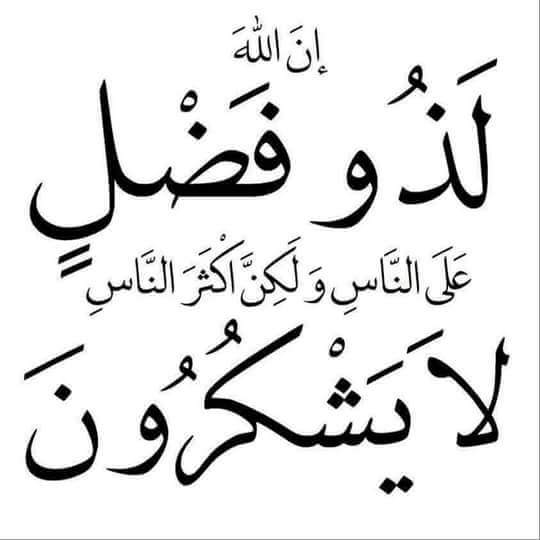 إنَ اللهَ
لَذُو فَضْلٍ
عَلَى النَّاسِ وَلَكِنَّ أَكْثَرَ النَّاسِ
لَا يَشْكُرُونَ